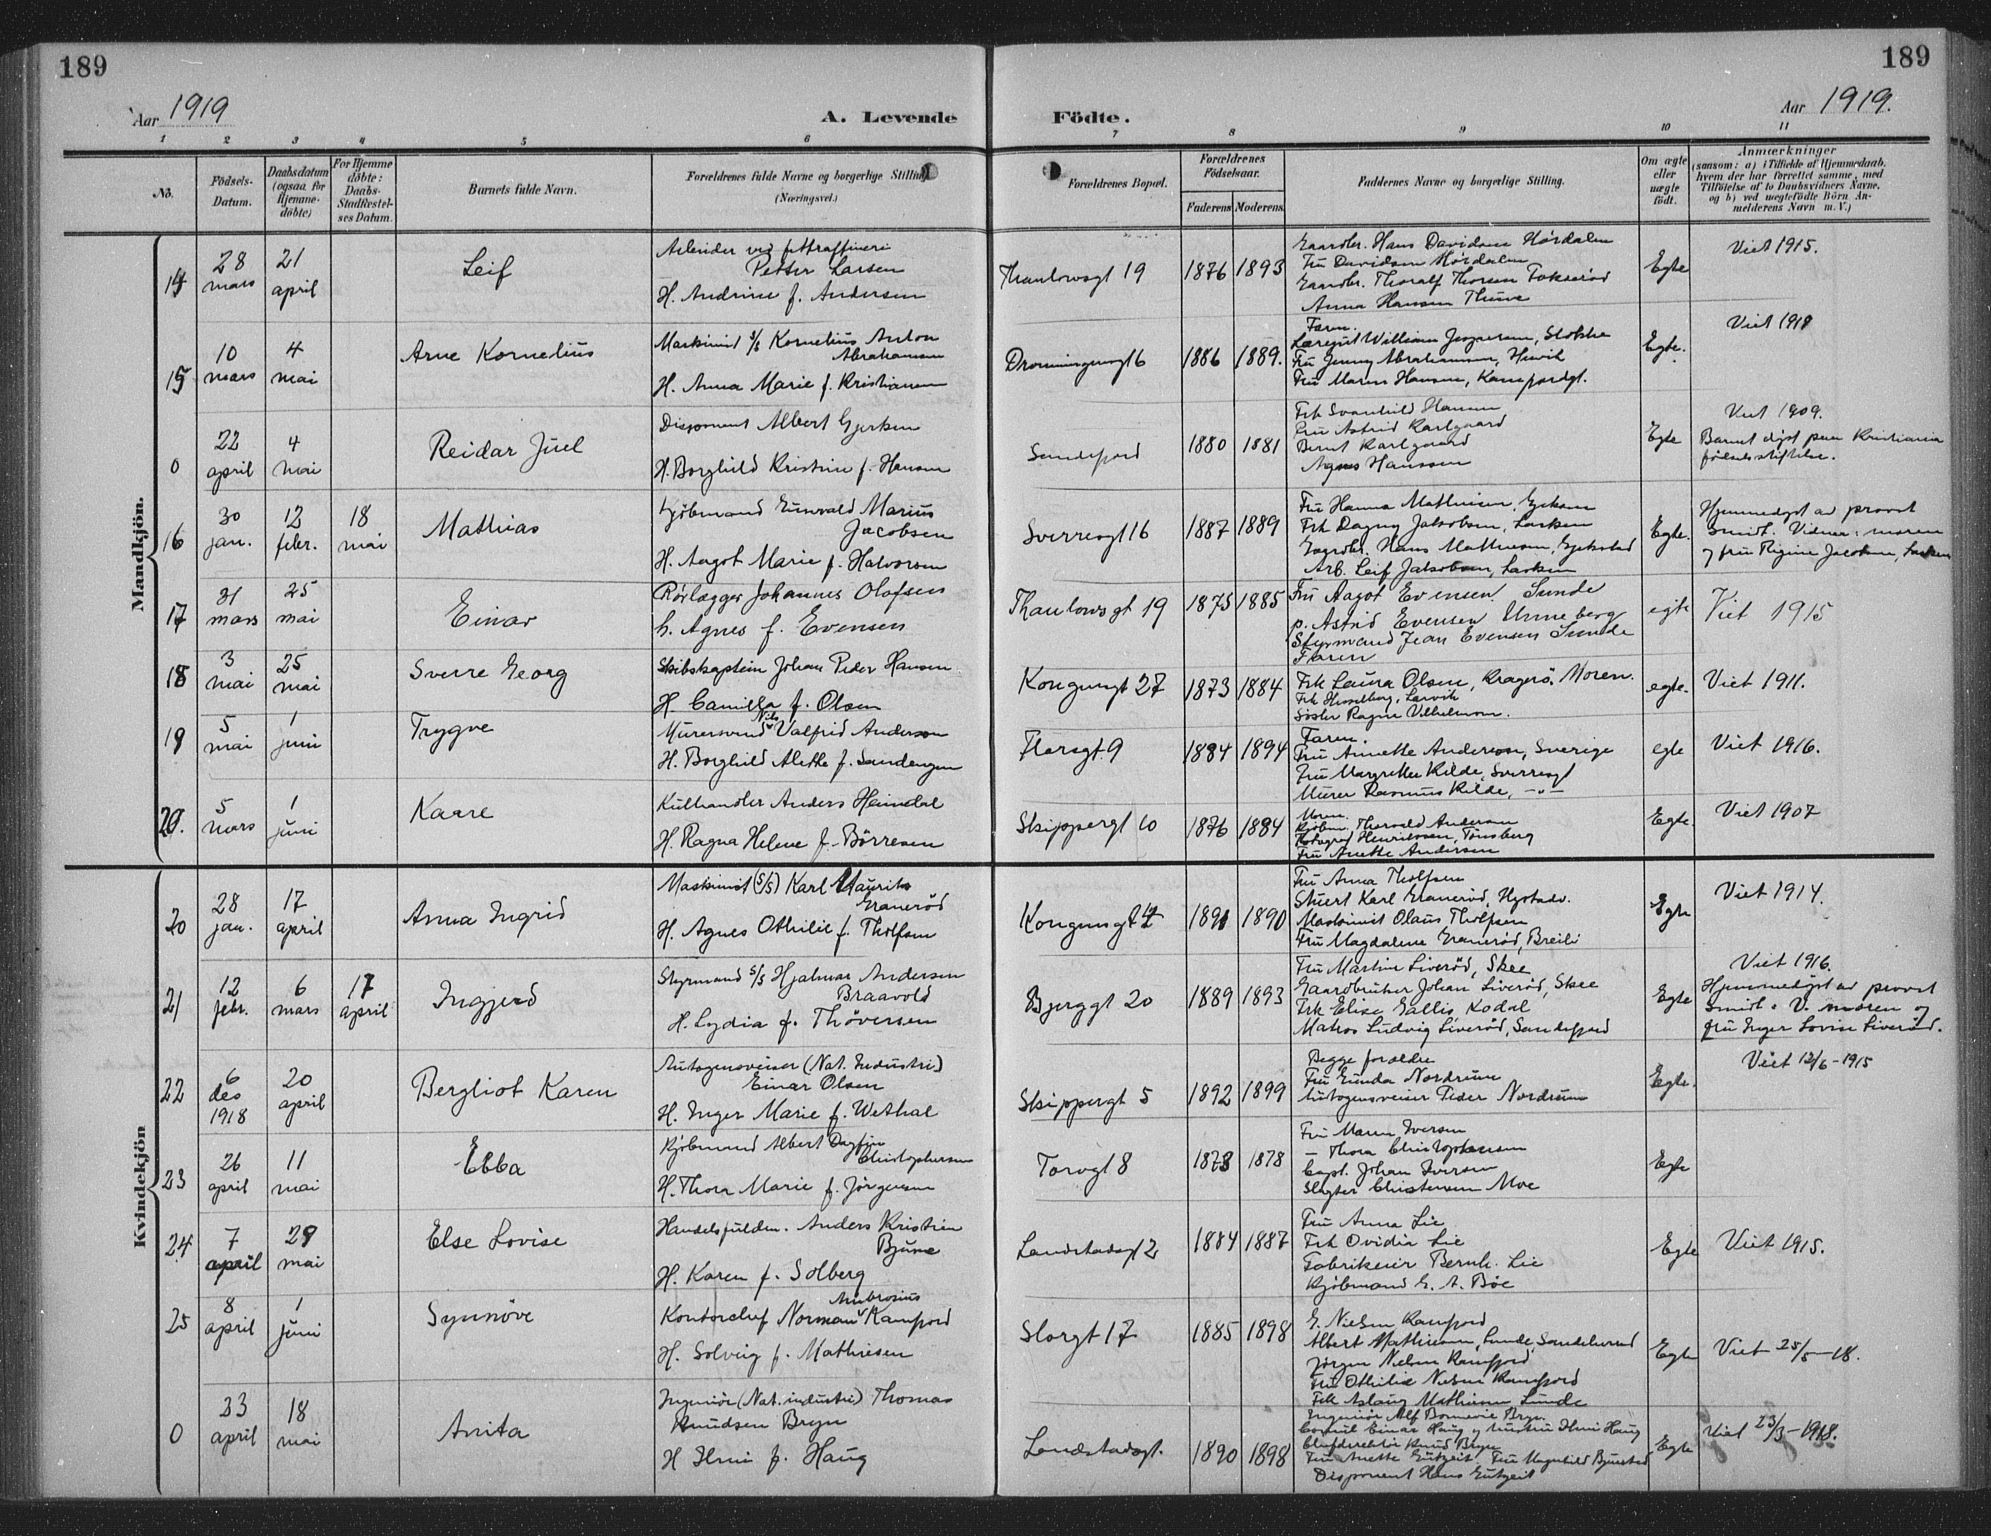 189
189
Aar 1919
A. Levende
Födte.
Aar 1919.
1 2 3 4 5 6 7 8 9 10 11
No.
Födsels-Datum.
Daabsdatum (ogsaa for Hjemme-döbte)
For Hjemme döbte: Daabs-Stadfæstel-ses Datum.
Barnets fulde Navn.
Forældrenes fulde Navne og borgerlige Stilling (Næringsvei.)
Forældrenes Bopæl.
Forældrenes Födselsaar.
Faderens Moderens
Faddernes Navne og borgerlige Stilling.
Om ægte eller uægte födt.
Anmærkninger
(saasom: a) i Tilfælde af Hjemmedaab, hvem der har forrettet samme, med Tilföielse af to Daabsvidners Navne, og b) ved uægtefödte Börn An-melderens Navn m. V.)
Mandkjön.
14 28 mars 21 april Leif
Arbeider ved fettraffineri
Petter Larsen
H. Andrine f. Andersen
Thaulowsgt 19 1876 1893
Gaardbr. Hans Davidsen Hördalen
Fru Davidsen Hördalen
Gaardbr. Thoralf Thorsen Fokserød
Anna Hansen Thune
Egte Viet 1915.
15 10 mars 4 mai Arne Kornelius
Maskinist s/s Kornelius Anton
Abrahamsen
H. Anna Marie f. Kristiansen
Dronningensgt 6 1886 1889.
Faren.
William Jørgensen, Stokke
Fru Jenny Abrahamsen, Hervik
Fru Maren Hansen, Kamfjordgt.
Egte. Viet 1911
0 22 april 4 mai Reidar Juel
Disponent Albert Gjerksen
H. Borghild Kristine f. Hansen
Sandefjord 1880 1881
Frk Svanhild Hansen
Fru Astrid Karlgaard
Bernt Karlgaard
Agnes Hanssen
Egte Viet 1909.
Barnet døpt paa Kristiania
fødselsstiftelse.
16 30 jan. 12 febr. 18 mai Mathias
Kjøbmand Gunvald Marius
Jacobsen
H. Aagot Marie f. Halvorsen
Sverresgt 16 1887 1889
Fru Hanna Mathisen, Gjekstad
Frk Dagny Jakobsen, Larkm
Gaardbr. Hans Mathisen, Gjekstad
Arb. Leif Jakobsen, Larkm
Egte. Hjemmedøpt av provst
Smidt. Vidner: moren
og fru Regine Jacobsen,
17 31 mars 25 mai Einar
Rørlægger Johannes Olafsen
h. Agnes f. Evensen
Thaulowsgt 19 1875 1885
Fru Aagot Evensen Sunde
p. Astrid Evensen Unneberg
Styrmand Jean Evensen Sunde
Faren
egte Viet 1915
18 3 mai 25 mai Sverre Georg
Skibskaptein Johan Peder Hansen
H. Camilla f. Olsen
Kongensgt 27 1873 1884
Frk Laura Olsen, Kragerø. Moren.
Frk Hesselberg, Larvik
Søster Ragna Vilhelmsen.
egte. Viet 1911.
19 5 mai 1 juni Trygve
Murersvend Nils Valfrid Anderson
H. Borghild Alette f. Sandengen
Flors gt. 9 1884 1894
Faren.
Fru Annette Anderson, Sverige
Fru Margrethe Kilde, Sverresgt
Murer Rasmus Kilde, -"-
egte Viet 1916.
20. 5 mars 1 juni Kaare
Kulhandler Anders Heimdal
H. Ragna Helene f. Børresen
Skippergt 10 1876 1884
Moren.
Kjøbm. Thorvald Andersen
Fotograf Henriksen, Tønsberg
Fru Anette Andersen
Egte. Viet 1907
Kvindekjön
20 28 jan. 17 april Anna Ingrid
Maskinist (s/s) Karl Maurits
Granerød
H. Agnes Othilie f. Tholfsen
Kongensgt 42 1891 1890
Fru Anna Tholfsen
Stuert Karl Granerød, Nystadv.
Maskinist Olaus Tholfsen
Fru Magdalene Granerød, Breili
Egte Viet 1914.
21 12 febr. 6 mars 17 april Ingjerd
Styrmand s/s Hjalmar Andersen
Braavold
H. Lydia f. Thøversen
Bjerggt 20 1889 1893
Fru Martine Liverød, Skee
Gaardbruker Johan Liverød, Skee
Frk Elise Gallis Kodal
Matros Ludvig Liverød, Sandefjord
Egte Viet 1916.
Hjemmedøpt av provst
Smidt. V. moren og
fru Inger Lovise Liverød.
22 6 des 1918 20 april Bergliot Karen
Autogensveiser (Nat. Industri)
Einar Olsen
H. Inger Marie f. Wethal
Skippergt 5 1892 1899
Begge forældre
Fru Gunda Nordrum
Autogensveiser Peder Nordrum
Egte. Viet 12/6 - 1915
23 26 april 11 mai Ebba
Kjøbmand Albert Dagfin
Christophersen
H. Thora Marie f. Jørgensen
Torvgt 8 1878 1878
Fru Maren Iversen
- Thora Christophersen
Capt. Johan Iversen
Slagter Christensen Moe
Egte
24 7 april 29 mai Else Lovise
Handelsfuldm. Anders Kristian
Bjune
H. Karen f. Solberg
Landstadsgt 2 1884 1887
Fru Anna Lie
Frk Ovidia Lie
Fabrikeier Bernh. Lie
Kjøbmand G. A. Bøe
Egte Viet 1915.
25 8 april 1 juni Synnöve
Kontorchef Norman Ambrosius Kamfjord
H. Solveig f. Mathiesen
Storgt 17 1885 1898
G. Nielsen Kamfjord
Albert Mathiesen, Lunde, Sandeherred
Jørgen Nielsen Kamfjord
Fru Othilie Nielsen Kamfjord
Frk Aslaug Mathiesen Lunde
Egte Viet 25/5 - 18.
0 23 april 18 mai Anita
Ingeniør (Nat. industri) Thomas
Knudsen Bryn
H Ilmi f. Haug
Landstadsgt. 1890 1898
Ingeniør Alf Bryn
Consul Einar Haug og hustru Ilmi Haug
Chefdirektør Knud Bryn
Fru Anette Gutzeit, Fru Magnhild Bjønstad
Disponent Hans Gutzeit
Egte Viet 23/3 - 1918.